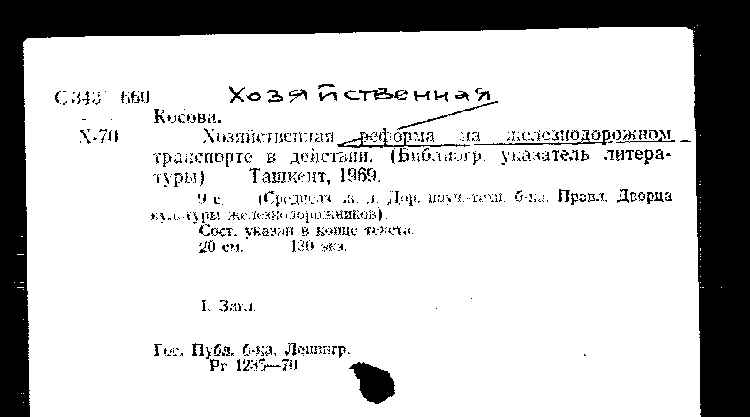 С343 660 Хозяйственная
Косова.
Х-70 Хозяйственная реформа на железнодорожном
транспорте в действии. (Библиогр. указатель литера-
туры) Ташкент, 1969.
9 с. (Среднеаз. ж. д. Дор. науч.-техн. б-ка. Правл. Дворца
культуры железнодорожников).
Сост. указан в конце текста.
20 см. 130 экз.
I. Загл.
Гос. Публ. б-ка. Ленингр.
Рг 1235—70